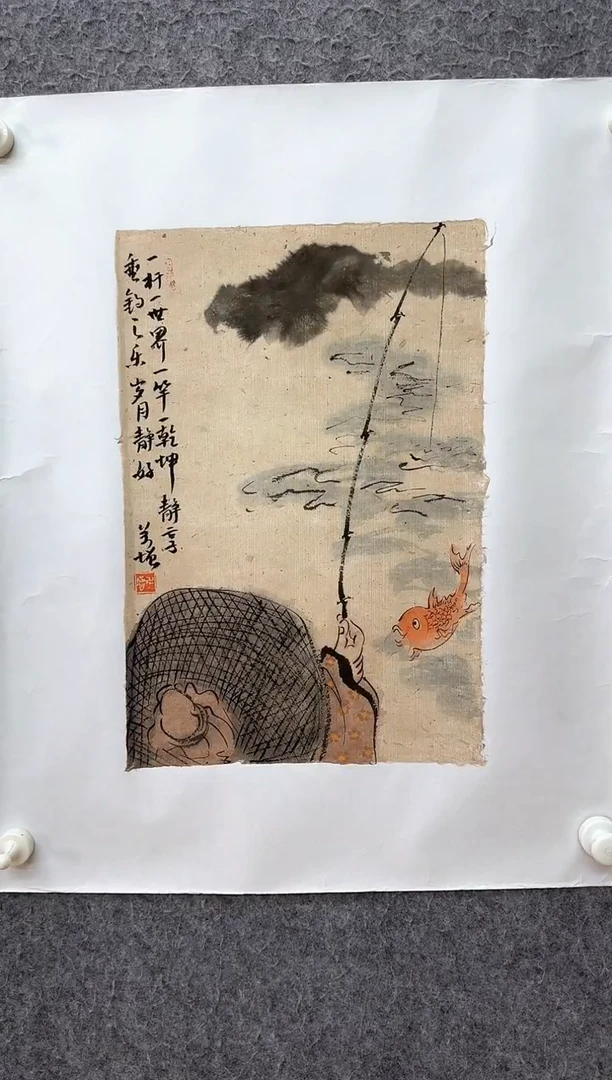 一杆一世界一竿一乾坤 静享
垂钓之乐岁月静好